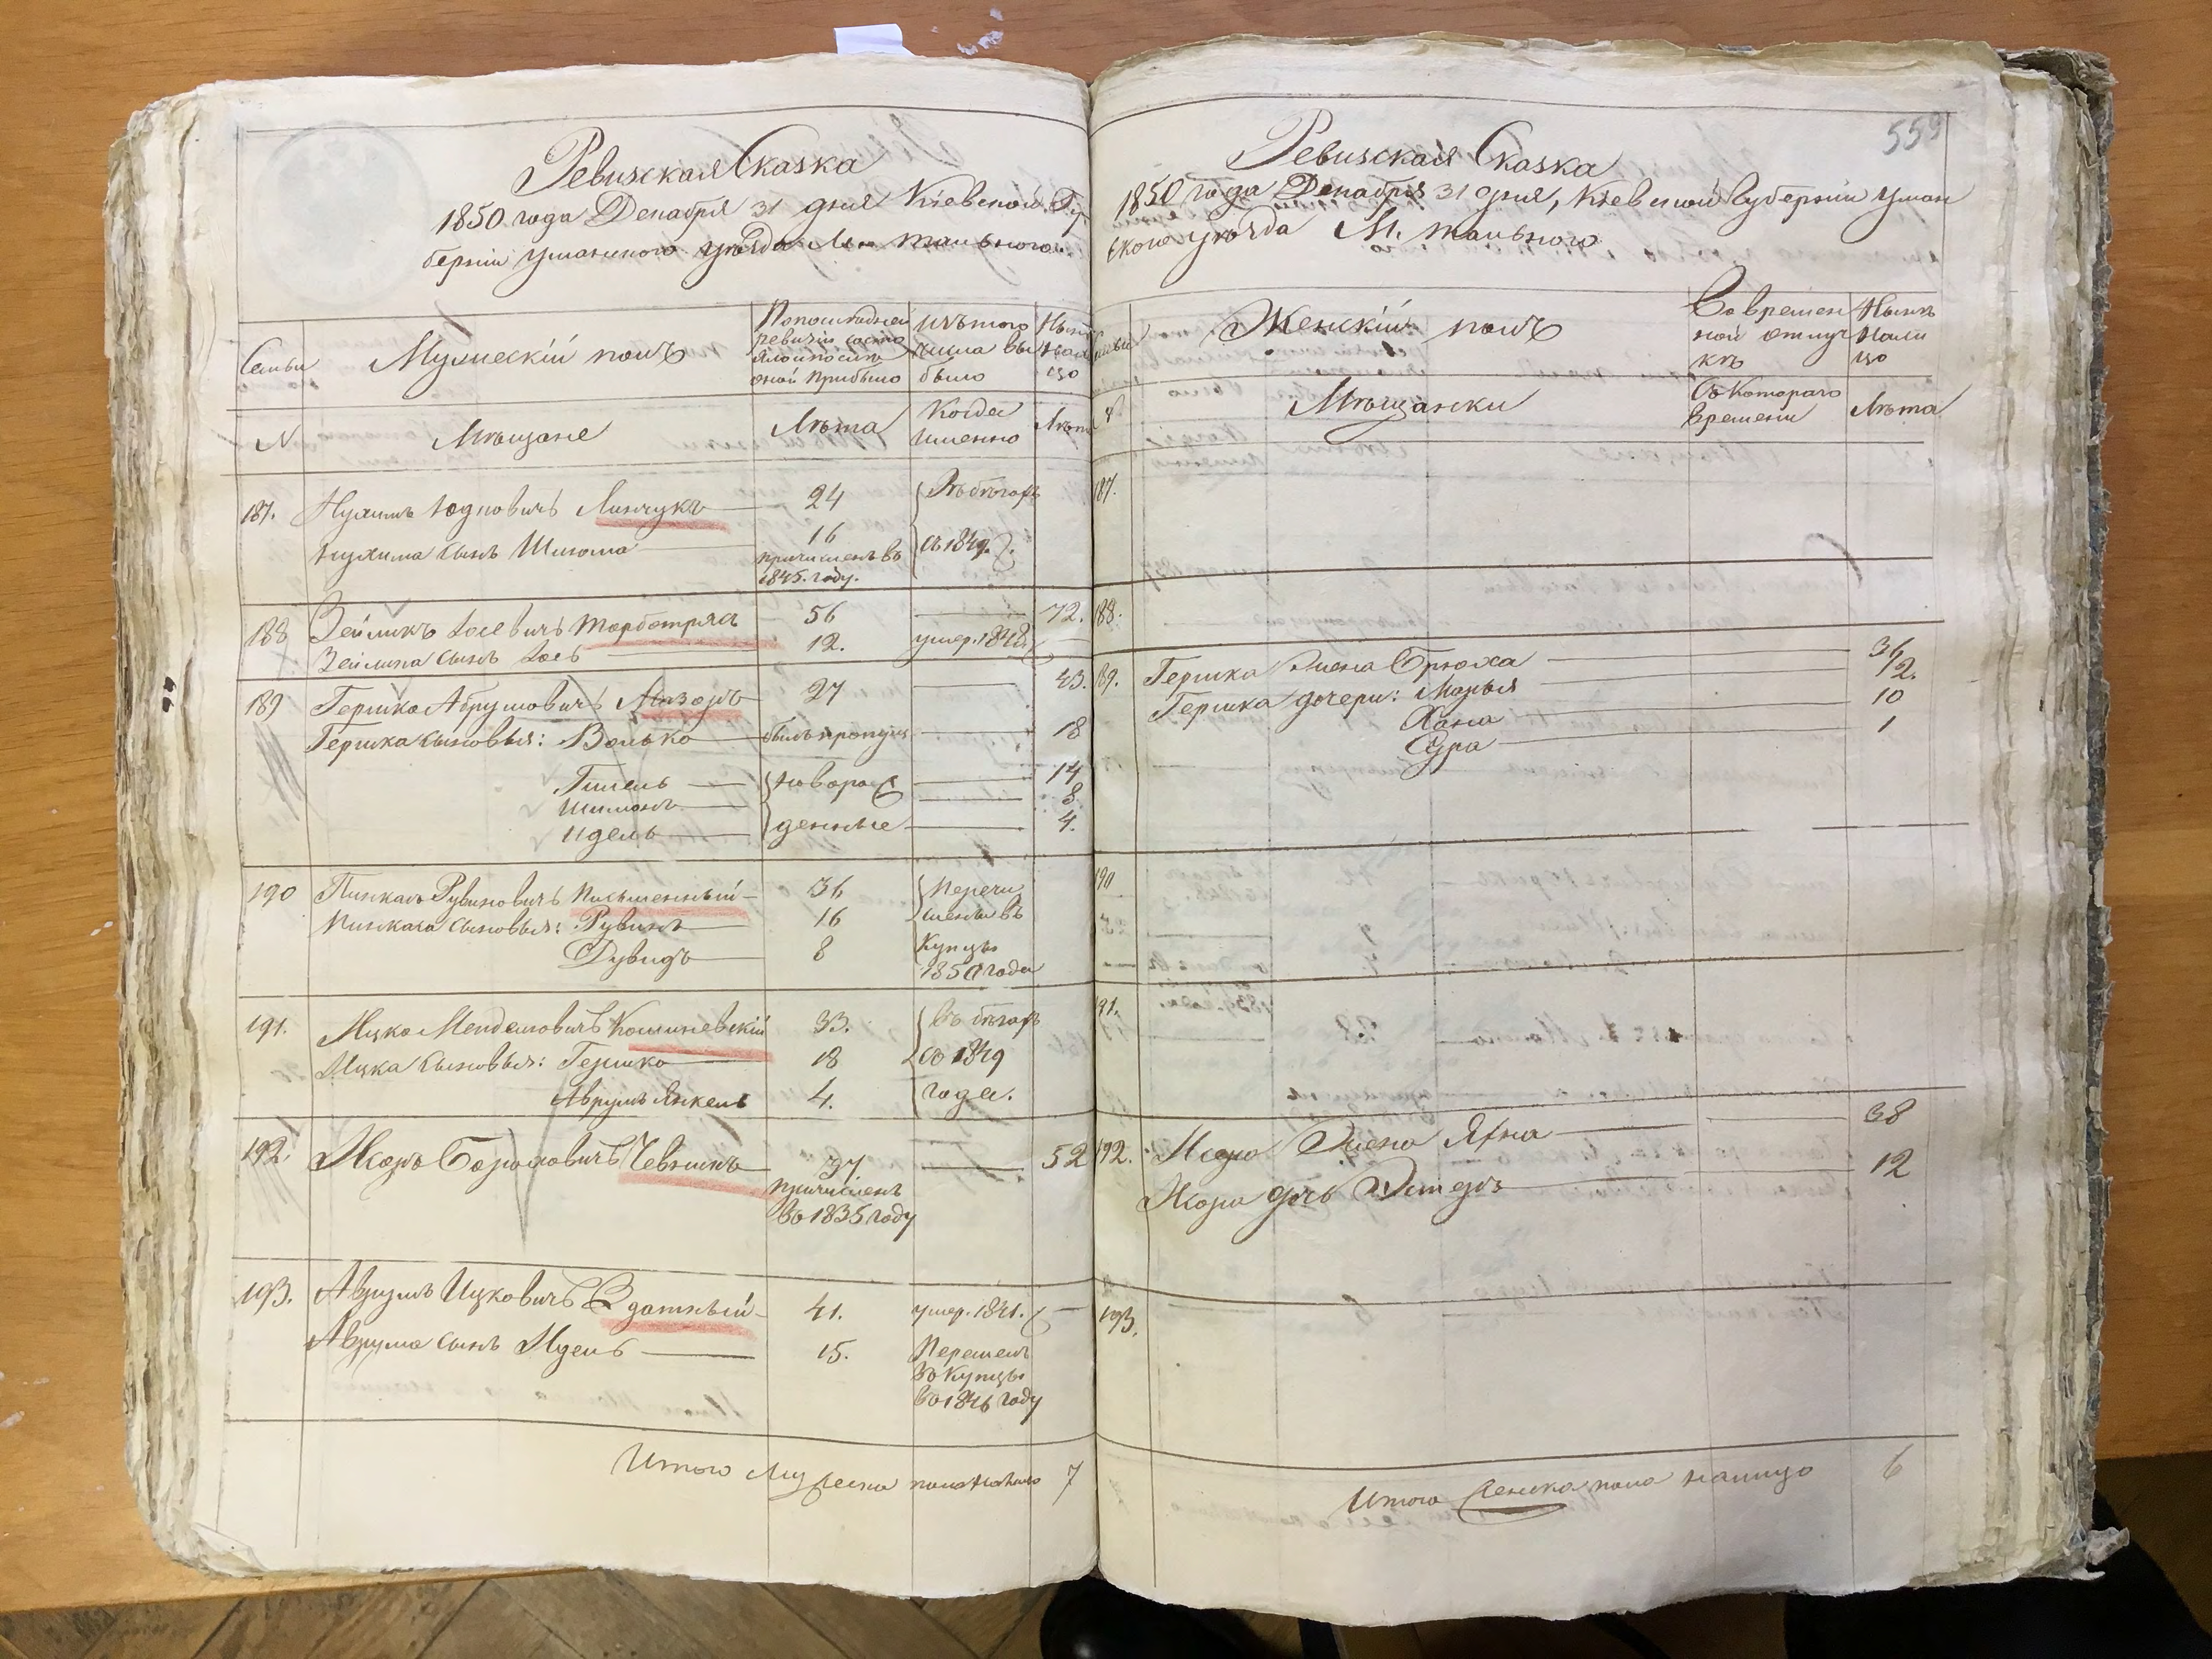 Ревизская Сказка
1850 года Декабря 31 дня Кіевской Гу
берніи Уманского уѣзда М. Тального
Семьи
Мужескій полъ
По последней
ревизіи состо
яло и после
оной прибыло
Изъ того
числа вы
было
Ныне
нали
цо
N.
Мѣщане
Лѣта
Когда
именно
Лѣта
187. Нухимъ Юдковичъ Линчукъ 24 Въ бѣгахъ
Нухима сынъ Шлиома 16 съ 1849.
причисленъ въ
1845. году.
188 Зейликъ Іосевичъ Торботряса 56 72.
Зейлика сынъ Іось 12. умер. 1848
189 Гершко Абрумовичъ Мазоръ 27 43.
Гершка сыновья: Волько былъ пропущ 18
Гишель новоро 14
Шимонъ 8
Идель денные 4.
190 Пинкасъ Рувиновичъ Письменный 36 Перечи
Пинкаса сыновья: Рувинъ 16 слены въ
Дувидъ 8 Купцы
1850 года
191. Ицко Менделовичъ Колиневскій 33. въ бѣгахъ
Ицка сыновья: Гершко 18 съ 1849
Аврумъ Янкель 4. года.
192. Бороховичъ 37 52
причисленъ
въ 1835 году
193. Аврумъ Ицковичъ Здатный 41. умер. 1841.
Аврума сынъ Идель 15. Перешелъ
въ Купцы
въ 1846 году
Итого мужеска пола налицо 7
559
Ревизская Сказка
1850 года Декабря 31 дня, Кіевской Губерніи Уман
скаго уѣзда М. Тального
Женскій полъ
Во времен
ной отлуч
кѣ
Нынѣ
нали
цо
Мѣщански
Съ которого
времени
Лѣта
187.
188.
189. Гершка жена Брюха 36
Гершка дочери: Марья 12.
Хана 10
Сура 1
190
191.
192. жена Яхна 38
дочь Эстеръ 12
193.
Итого женска пола налицо 6